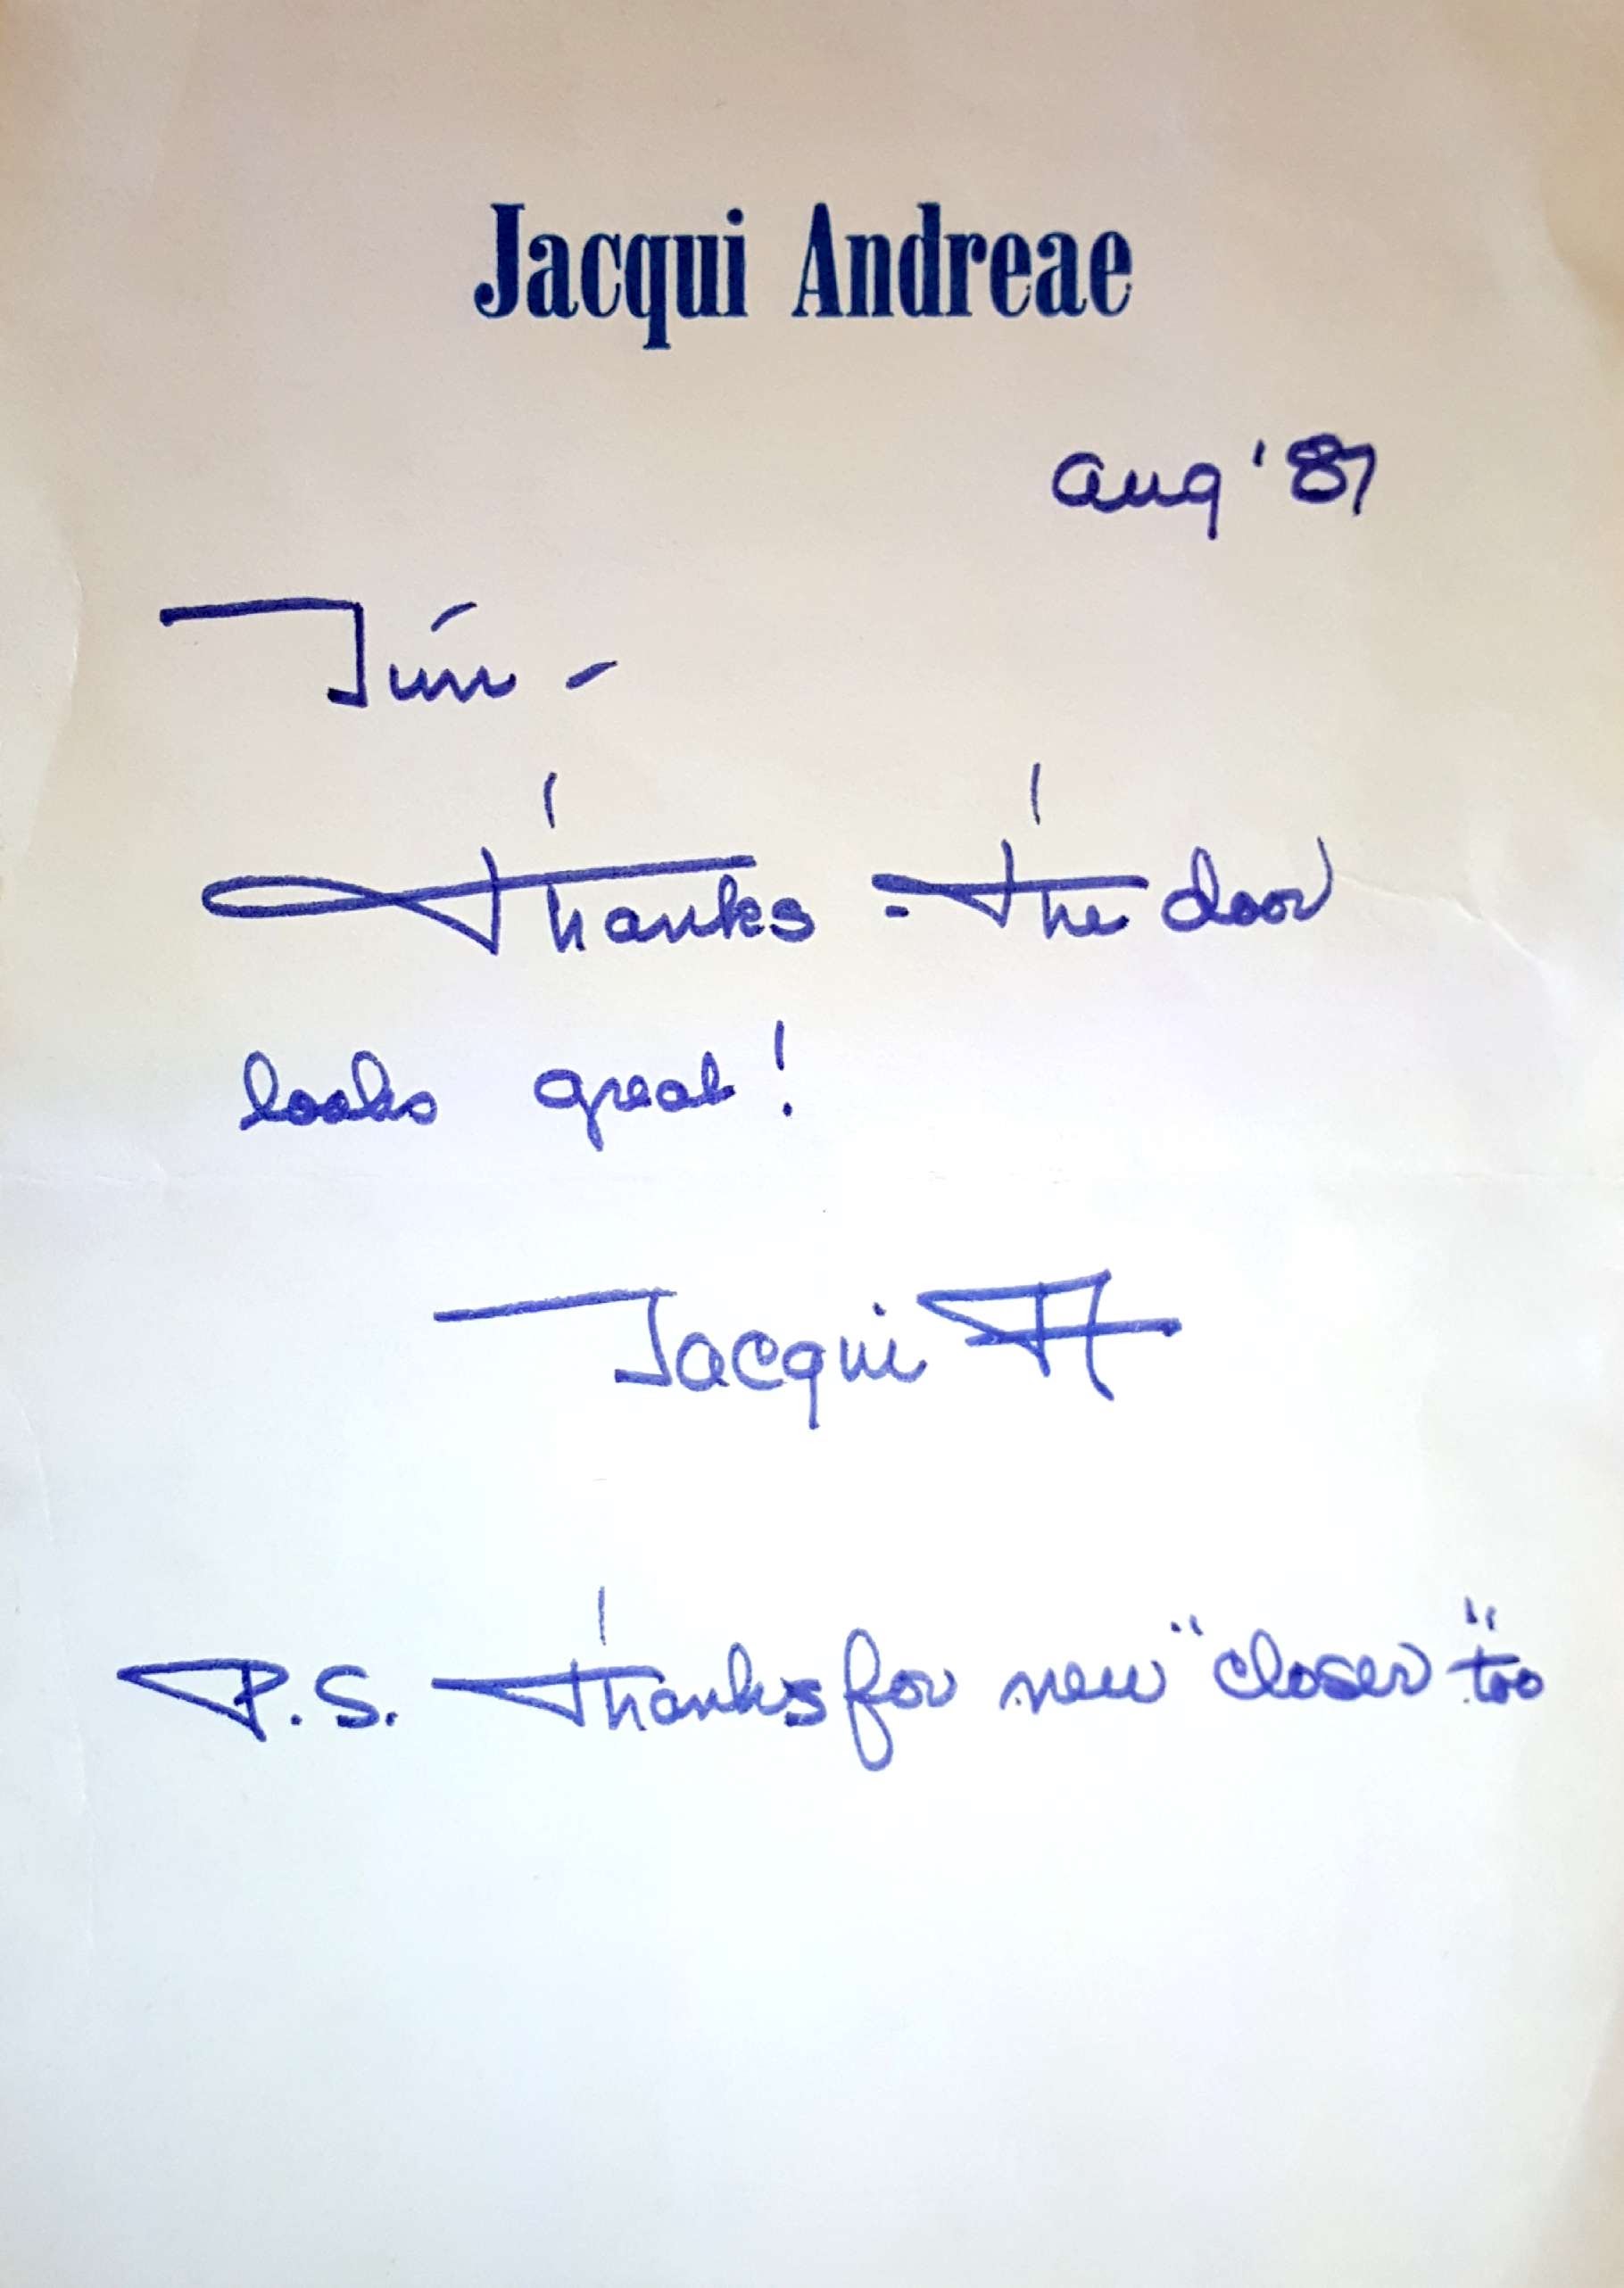 Jacqui Andreae
Aug '87
Jim -
Thanks - The door
looks great!
Jacqui A
P.S. Thanks for new "closer" too